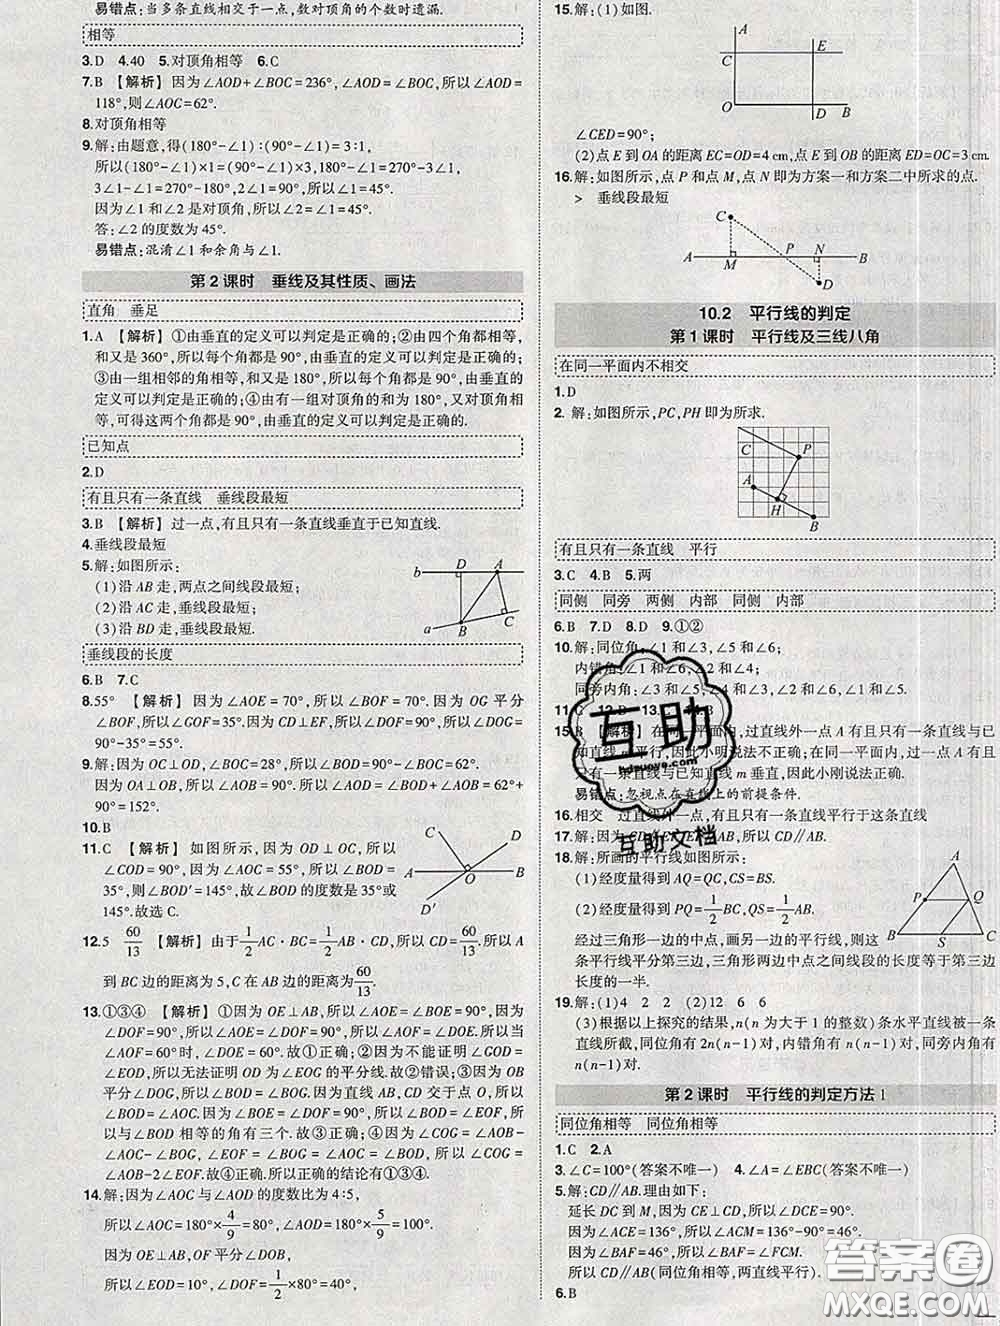 易错点:当多条直线相交于一点,数对顶角的个数时遗漏.
相等
3.D 4.40 5.对顶角相等 6.C
7.B 【解析】 因为∠AOD+∠BOC=236°,∠AOD=∠BOC,所以∠AOD=
118°,则∠AOC=62°.
8.对顶角相等
9.解:由题意,得(180°-∠1):(90°-∠1)=3:1,
所以(180°-∠1)×1=(90°-∠1)×3,180°-∠1=270°-3∠1,
3∠1-∠1=270°-180°,2∠1=90°,所以∠1=45°.
因为∠1和∠2是对顶角,所以∠2=∠1=45°.
答:∠2的度数为45°.
易错点:混淆∠1和余角与∠1.
第2课时 垂线及其性质、画法
直角 垂足
1.A 【解析】 ①由垂直的定义可以判定是正确的;②由四个角都相等,
和又是360°,所以每个角都是90°,由垂直的定义可以判定是正确的;
③由一组相邻的角相等,和又是180°,所以每个角都是90°,由垂直
的定义可以判定是正确的;④由有一组对顶角的和为180°,又对顶角
相等,可得这两个角都是90°,由垂直的定义可以判定是正确的.
已知点
2.D
有且只有一条直线 垂线段最短
3.B 【解析】 过一点,有且只有一条直线垂直于已知直线.
4.垂线段最短
5.解:如图所示:
(1)沿AB走,两点之间线段最短;
(2)沿AC走,垂线段最短;
(3)沿BD走,垂线段最短.
b D A
a B C
垂线段的长度
6.B 7.C
8.55° 【解析】 因为∠AOE=70°,所以∠BOF=70°.因为OG平分
∠BOF,所以∠GOF=35°.因为CD⊥EF,所以∠DOF=90°,所以∠DOG=
90°-35°=55°.
9.解:因为OC⊥OD,∠BOC=28°,所以∠BOD=90°-∠BOC=62°.
因为OA⊥OB,所以∠AOB=90°,所以∠AOD=∠BOD+∠AOB=62°+
90°=152°.
10.B
11.C 【解析】 如图所示,因为OD⊥OC,所以
∠COD=90°,因为∠AOC=55°,所以∠BOD=
35°,所以∠BOD′=145°,故∠BOD的度数是35°或
145°.故选C.
C D
A O B
D′
12.5 60/13 【解析】 由于1/2AC·BC=1/2AB·CD,所以CD=60/13.所以A
到BC边的距离为5,C在AB边的距离为60/13.
13.①③④ 【解析】 ①因为OE⊥AB,所以∠AOE=∠BOE=90°,因为
∠DOF=90°,所以∠AOF=90°-∠EOF,∠DOE=90°-∠EOF.所以当
∠AOF=60°时,∠DOE=60°.故①正确;②因为不能证明∠GOD=
∠EOD,所以无法证明OD为∠EOG的平分线.故②错误;③因为OF
平分∠DOG,所以∠DOF=90°.因为直线AB,CD交于点O,所以∠BOD=
∠AOC.因为∠BOE=∠DOF=90°,所以∠BOD=∠EOF,所以与
∠BOD相等的角有三个.故③正确;④∠COG=∠AOB-
∠AOC-∠BOG,因为∠AOC=∠BOD=∠EOF,所以∠COG=
∠AOB-2∠EOF.故④正确.所以正确的结论有①③④.
14.解:因为∠AOC与∠AOD的度数比为4:5,
所以∠AOC=180°×4/9=80°,∠AOD=180°×5/9=100°.
因为OE⊥AB,OF平分∠DOB,
所以∠EOD=10°,∠DOF=1/2×80°=40°,
15.解:(1)如图.
A
C E
O D B
∠CED=90°;
(2)点E到OA的距离EC=OD=4 cm,点E到OB的距离ED=OC=3 cm.
16.解:如图所示,点P和点M,点N即为方案一和方案二中所求的点.
> 垂线段最短
C
A M P N B
D
10.2 平行线的判定
第1课时 平行线及三线八角
在同一平面内不相交
1.D
2. 解:如图所示,PC,PH即为所求.
C P
A
H
B
有且只有一条直线 平行
3.C 4.B 5.两
同侧 同旁 两侧 内部 同侧 内部
6.B 7.D 8.D 9.①②
10.解:同位角:∠1和∠3,∠5和∠6;
内错角:∠1和∠6,∠2和∠4;
同旁内角:∠3和∠5,∠4和∠2,∠4和∠5.
11.C 12.D 13.C 14.B
15.B 【解析】 在同一平面内,过直线外一点A有且只有一条直线与已
知直线m平行,因此小明说法不正确;在同一平面内,过一点A有且
只有一条直线与已知直线m垂直,因此小刚说法正确.
易错点:忽视点在直线上的前提条件.
16.相交 过直线外一点,有且只有一条直线平行于这条直线
17.解:因为CD∥EF,EF∥AB,所以CD∥AB.
18.解:所画的平行线如图所示:
(1)经度量得到AQ=QC,CS=BS.
(2)经度量得到PQ=1/2BC,QS=1/2AB.
A
P Q
B S C
经过三角形一边的中点,画另一边的平行线,这
条平行线平分第三边,三角形两边中点之间线段的长度等于第三边
长度的一半.
19.解:(1)4 2 2 (2)12 6 6
(3)根据以上探究的结果,n(n为大于1的整数)条水平直线被一条
直线所截,同位角有2n(n-1)对,内错角有n(n-1)对,同旁内角有
n(n-1)对.
第2课时 平行线的判定方法1
同位角相等 同位角相等
1.C 2.A
3.∠C=100°(答案不唯一) 4.∠A=∠EBC(答案不唯一)
5.解:CD∥AB.理由如下:
延长DC到M,因为CE⊥CD,所以∠DCE=90°.
因为∠ACE=136°,所以∠ACM=136°-90°=46°.
因为∠BAF=46°,所以∠BAF=∠FCM.
所以CD∥AB(同位角相等,两直线平行).
6.B
互助
hdzuoye.com
互助文档
答案圈
MXQE.COM